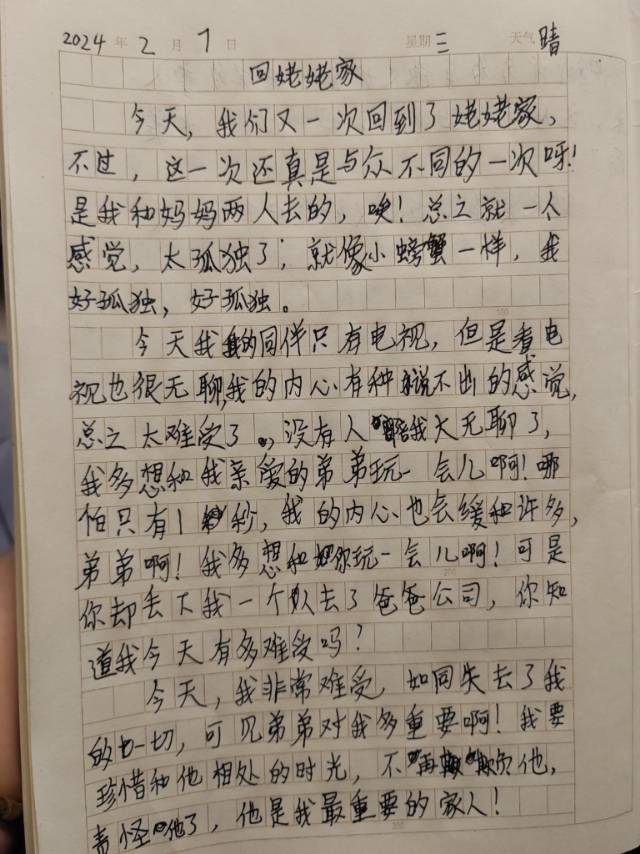 2024年2月7日 星期三 天气晴
回姥姥家
今天,我们又一次回到了姥姥家,
不过,这一次还真是与众不同的一次呀!
是我和妈妈两人去的,唉!总之就一个
感觉,太孤独了;就像小螃蟹一样,我
好孤独,好孤独。
今天我的同伴只有电视,但是看电
视也很无聊,我的内心有种说不出的感觉,
总之太难受了,没有人陪我太无聊了,
我多想和我亲爱的弟弟玩一会儿啊!哪
怕只有1秒,我的内心也会缓和许多,
弟弟啊!我多想和你玩一会儿啊!可是
你却丢下我一个人去了爸爸公司,你知
道我今天有多难受吗?
今天,我非常难受,如同失去了我
的一切,可见弟弟对我多重要啊!我要
珍惜和他相处的时光,不再欺负他,
责怪他了,他是我最重要的家人!